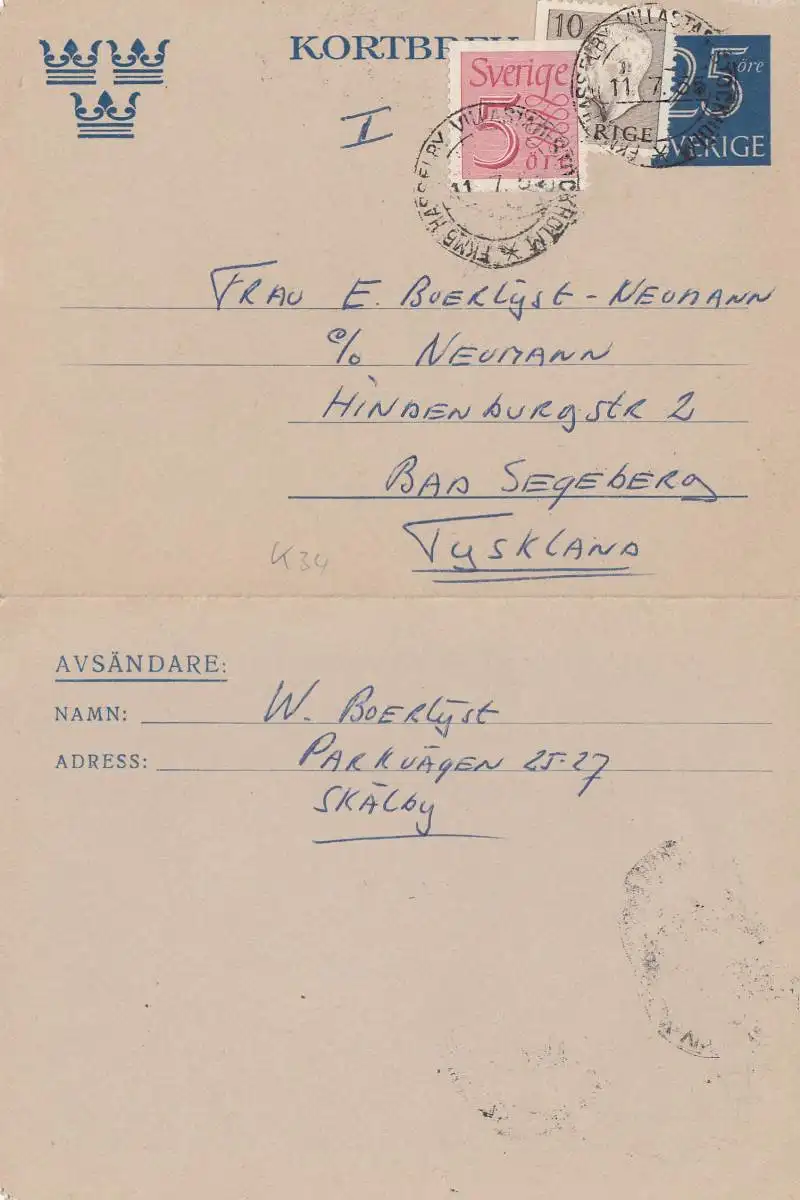 KORTBREV
I
Sverige
5
öre
10
25 öre
SVERIGE
HÄSSELBY VILLASTAD STOCKHOLM
11. 7.
FRAU E. BOERLIJST-NEUMANN
c/o NEUMANN
HINDENBURGSTR 2
BAD SEGEBERG
TYSKLAND
K34
AVSÄNDARE:
NAMN: W. BOERLIJST
ADRESS: PARKVÄGEN 25-27
SKÄLBY